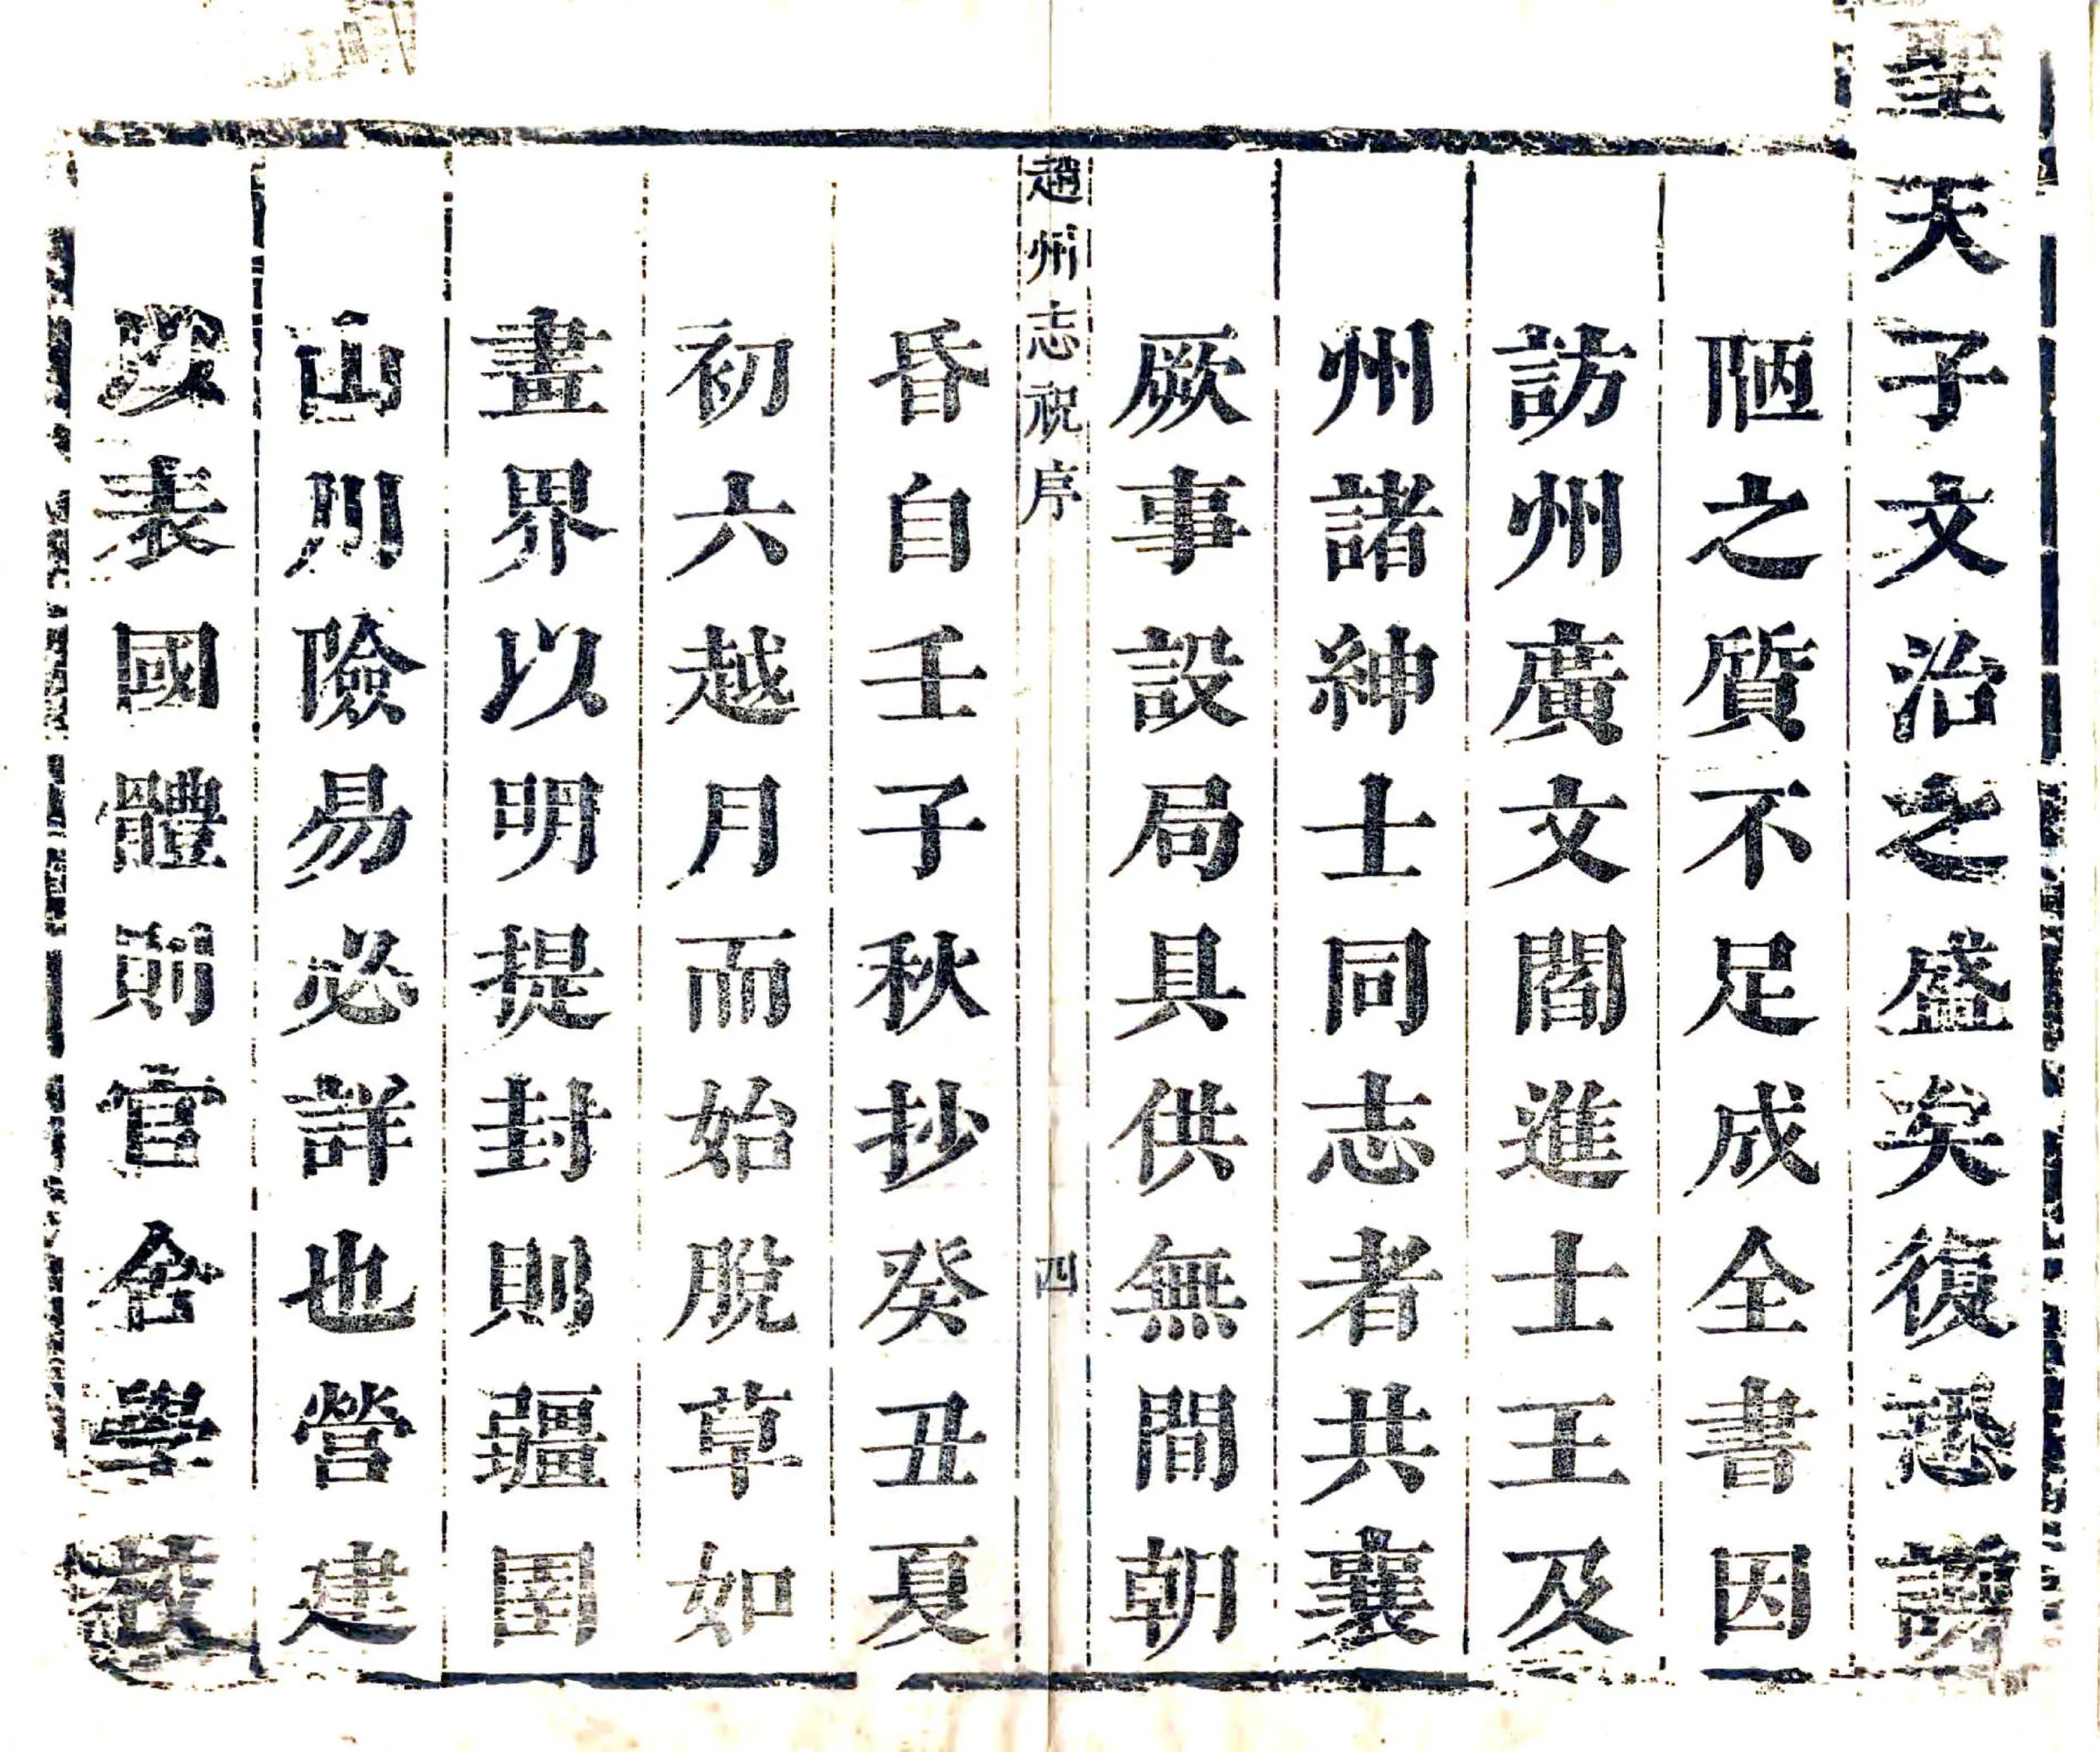 聖天子文治之盛矣復恐謭
陋之質不足成全書因
訪州廣文閻進士王及
州諸紳士同志者共襄
厥事設局具供無間朝
趙州志祝序
四
昏自壬子秋抄癸丑夏
初六越月而始脫草如
畫界以明提封則疆圉
山川險易必詳也營建
以表國體則官舍學校